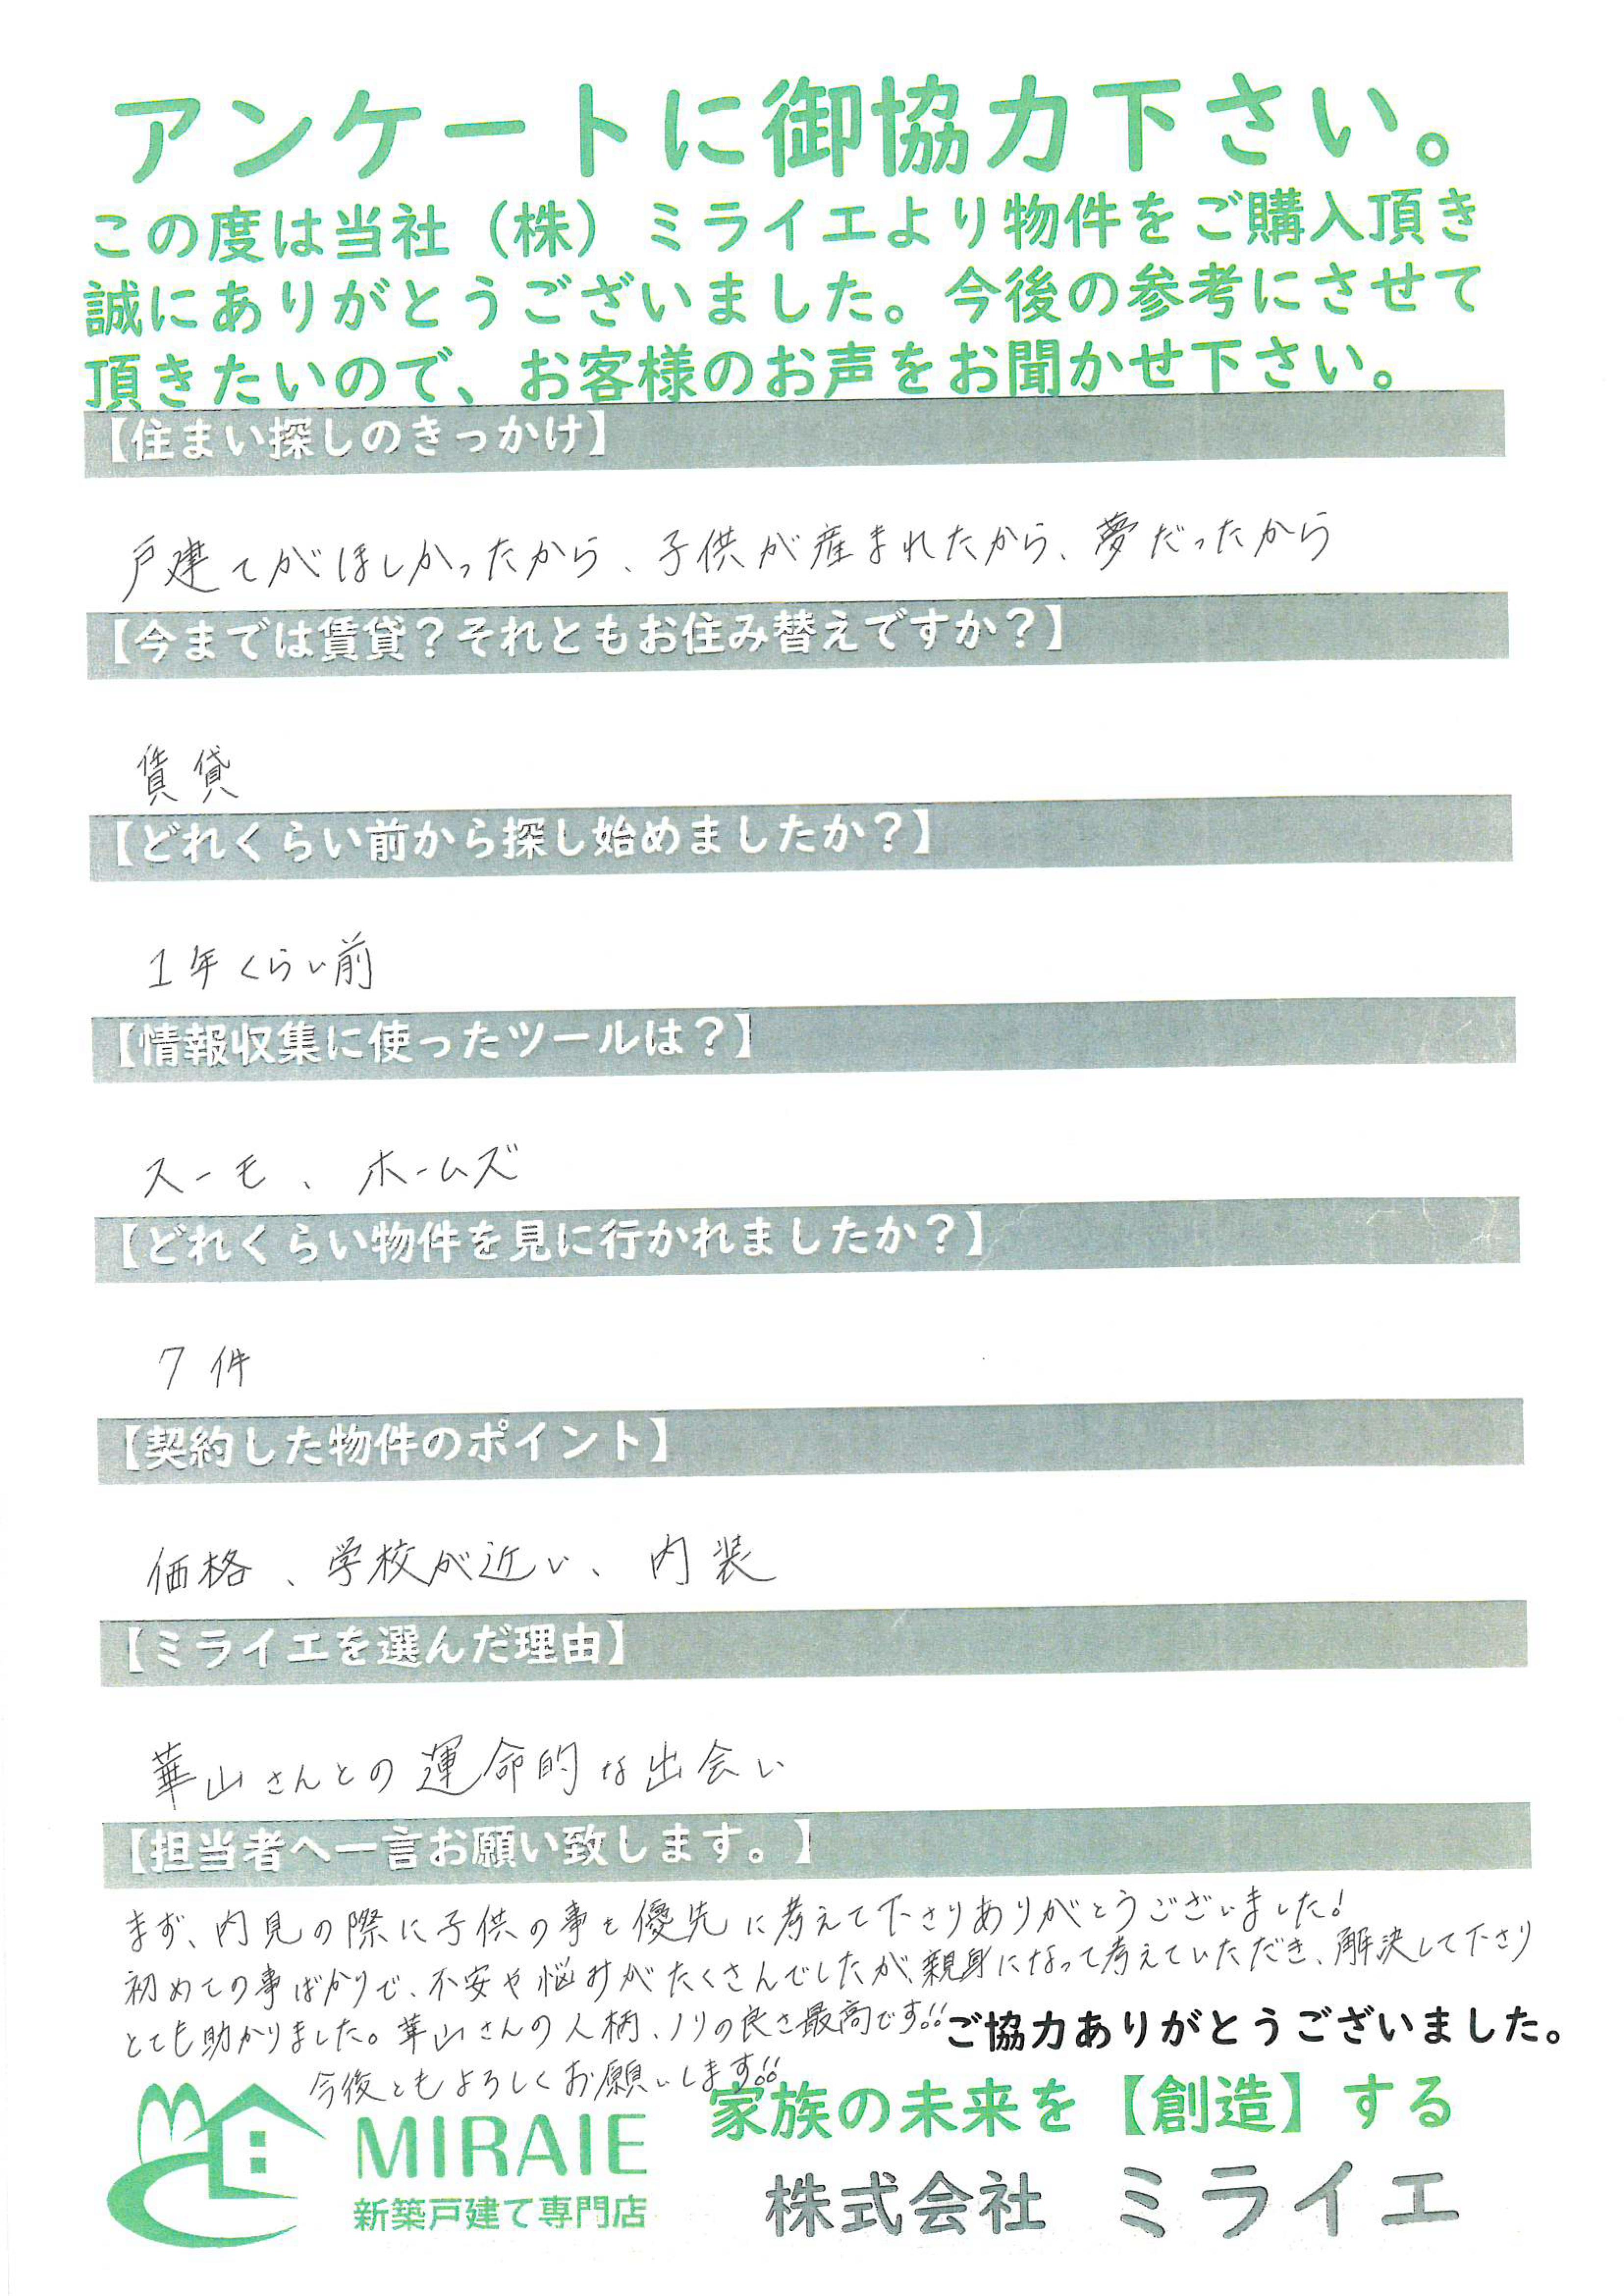 アンケートに御協力下さい。
この度は当社（株）ミライエより物件をご購入頂き
誠にありがとうございました。今後の参考にさせて
頂きたいので、お客様のお声をお聞かせ下さい。
【住まい探しのきっかけ】
戸建てがほしかったから、子供が産まれたから、夢だったから
【今までは賃貸？それともお住み替えですか？】
賃貸
【どれくらい前から探し始めましたか？】
1年くらい前
【情報収集に使ったツールは？】
スーモ、ホームズ
【どれくらい物件を見に行かれましたか？】
7件
【契約した物件のポイント】
価格、学校が近い、内装
【ミライエを選んだ理由】
華山さんとの運命的な出会い
【担当者へ一言お願い致します。】
まず、内見の際に子供の事を優先に考えて下さりありがとうございました！
初めての事ばかりで、不安や悩みがたくさんでしたが、親身になって考えていただき、解決して下さり
とても助かりました。華山さんの人柄、ノリの良さ最高です!!
ご協力ありがとうございました。
今後ともよろしくお願いします!!
家族の未来を【創造】する
MIRAIE
新築戸建て専門店
株式会社 ミライエ